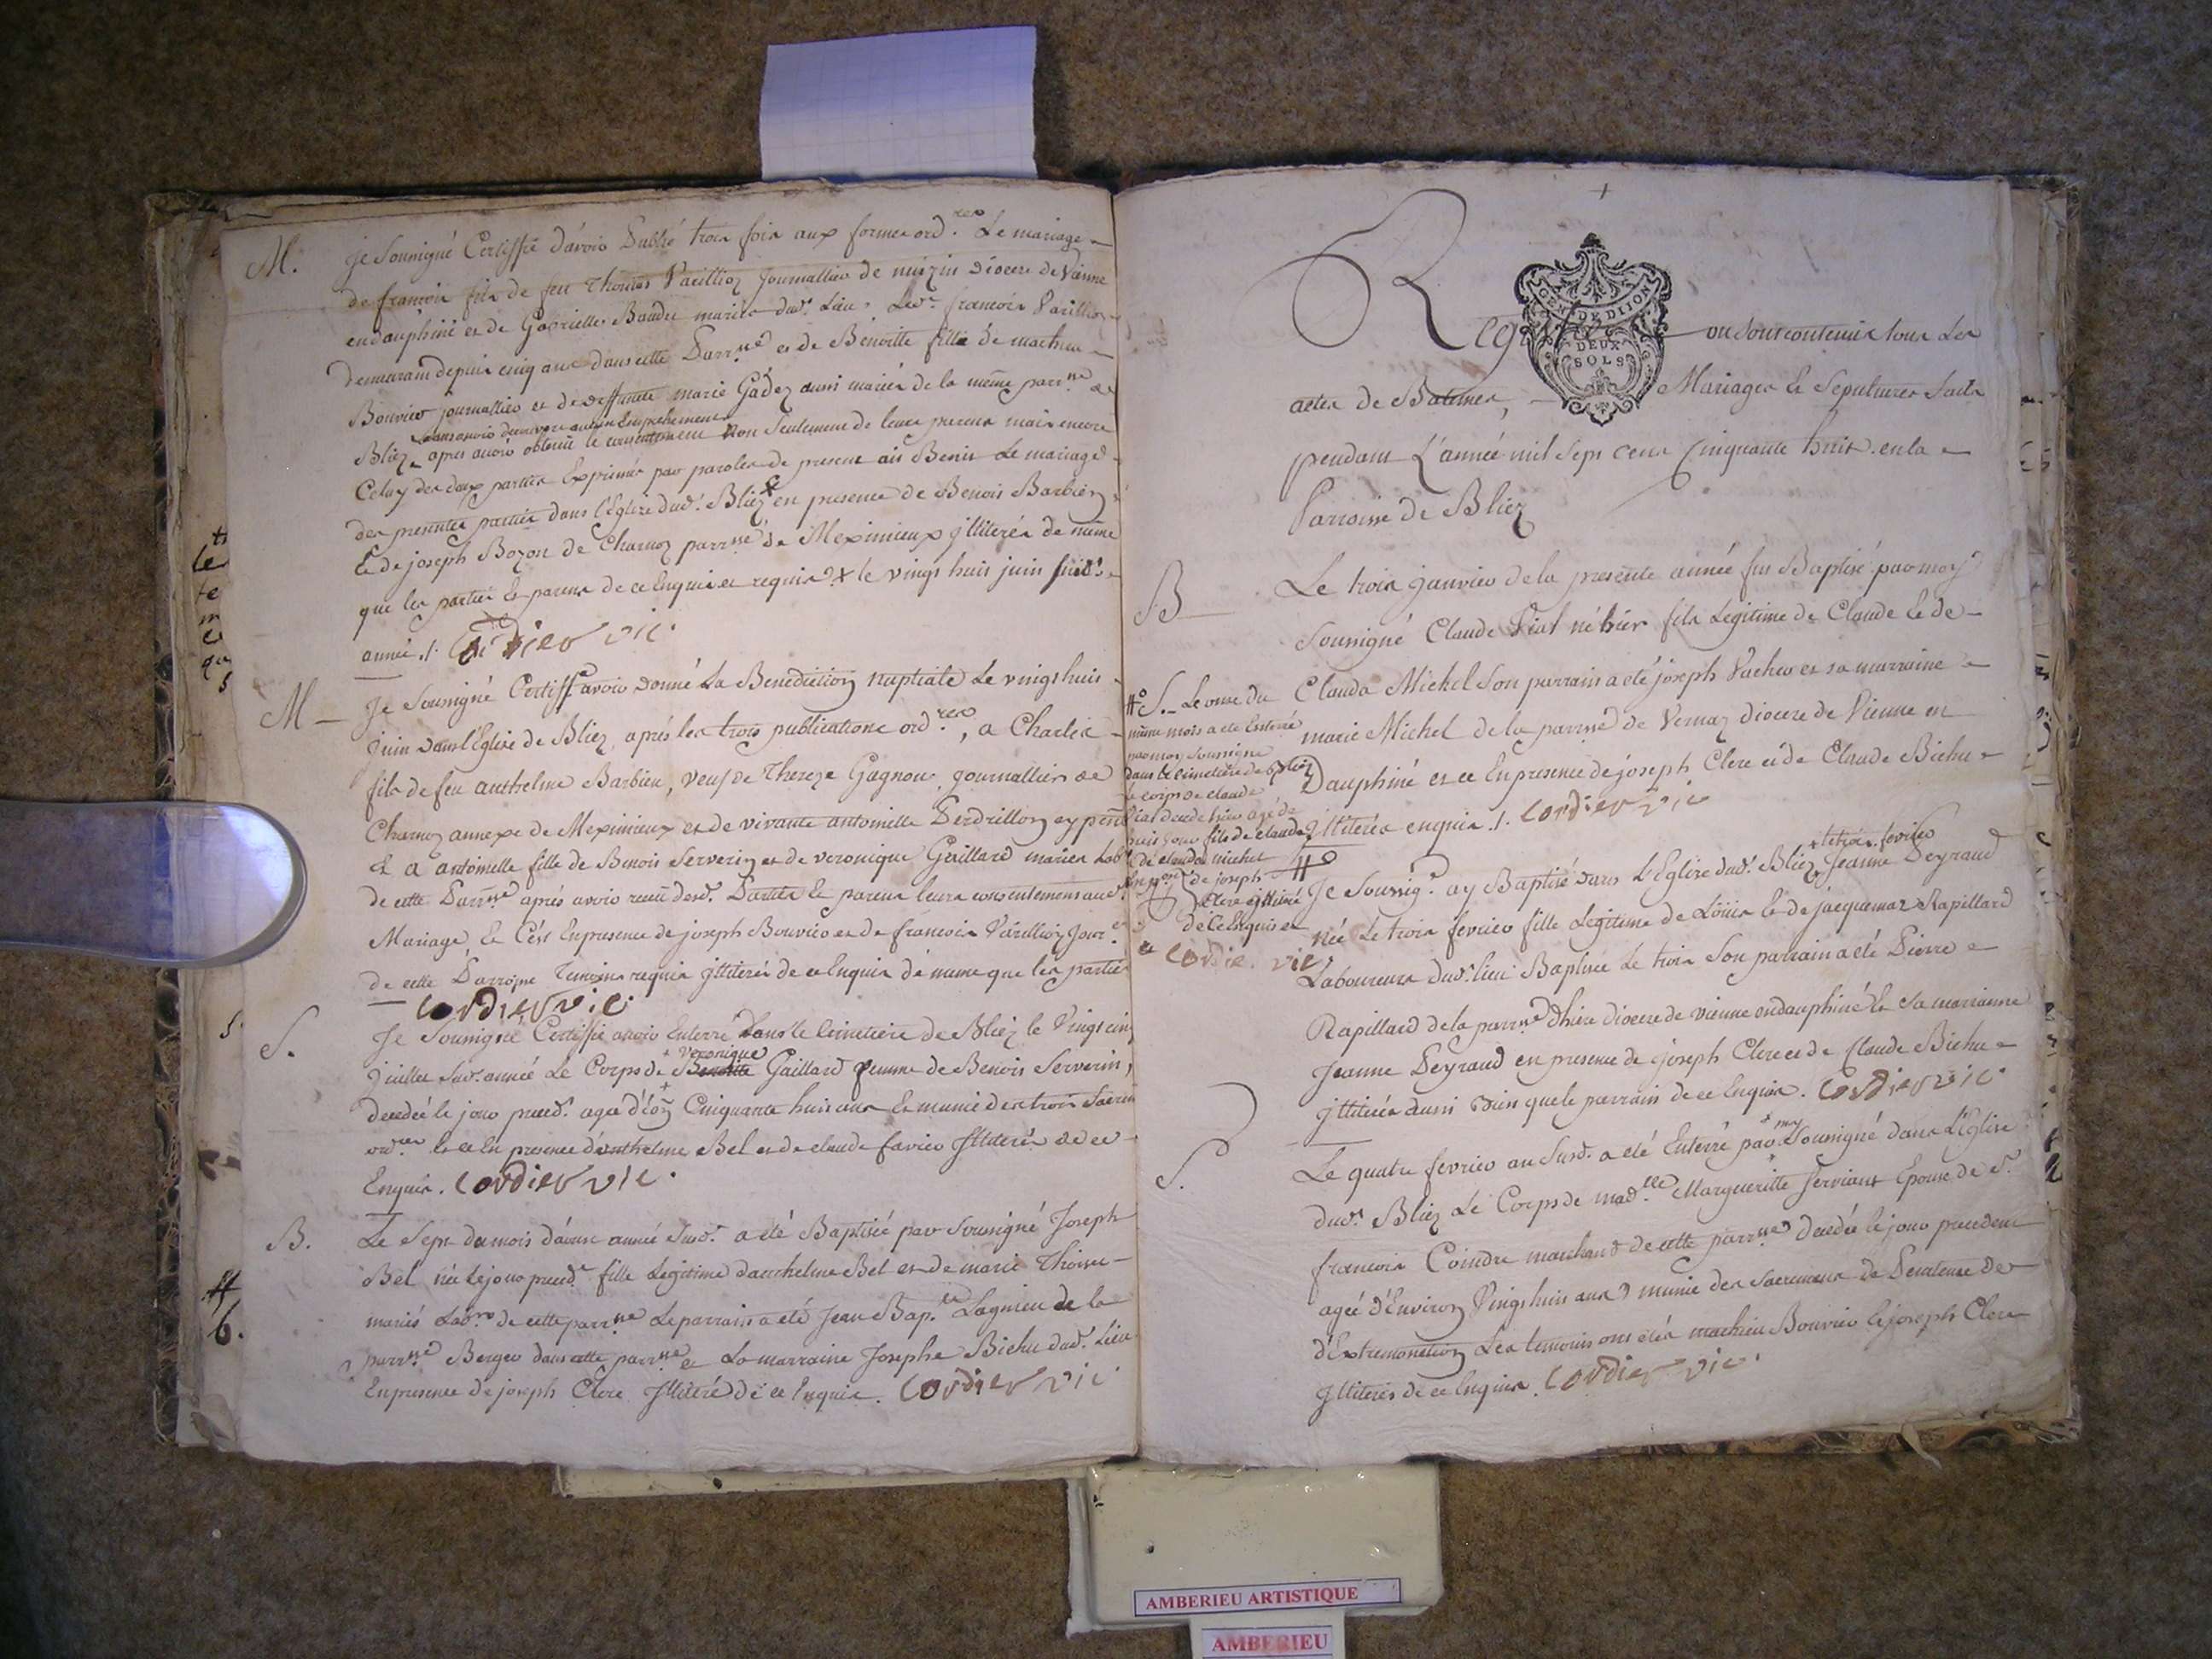 M. Je Soussigné Certiffie d'avoir Publié trois fois aux formes ord.res Le mariage
de françois fils de feu Thomas Varillioz Journallier de diocese de Vienne
en dauphiné et de Gabrielle Baudu mariés dud. Lieu, Led. françois Varillioz
demeurant depuis cinq ans dans cette Parr.ne et de Benoitte fille de mathieu
Bouvier journallier et de deffunte marie Gâdez aussi mariés de la même parr.ne de
sans avoir decouvert aucun Empechement
Bliez apres avoir obtenu le consentement Non Seulement de leurs parens mais encore
Celuy des deux parties Exprimés par paroles de present aÿ Benit Le mariage
des presentes parties dans l'Eglise dud. Bliez en presence de Benois Barbier
& de joseph Bozon de Charnoz parr.ne de Meximieux jlliterés de même
que les parties & parens de ce Enquis et requis le vingt huit juin susd.
année ./. Cordier vic.
M – Je Soussigné Certiff avoir donné La Benediction nuptiale Le vingt huit
Juin dans l'Eglise de Bliez, après les trois publications ord.res, a Charles
fils de feu anthelme Barbier, veuf de Thereze Gagnou journallier de
Charnoz annexe de Meximieux et de vivante antoinette Perdrillon
& a antoinette fille de Benois Serverin et de veronique Gaillard mariés Lab.
de cette Parr.ne après avoir receu desd. Parties & parens leurs consentemens aud.
Mariage, & Cést En presence de joseph Bouvier et de francois Varillioz Jour.
de cette Parroisse Temoins requis jlliterés de ce Enquis de même que les parties
— Cordier vic.
S. Je Soussigné Certiffie avoir Enterré Dans le Cimetiere de Bliez le Vingt cinq
veronique
Juillet Sud. année Le Corps de Benoitte Gaillard femme de Benois Serverin,
decedée le jour preced. agée d'e Cinquante huit ans & munie des trois Sacrem
ord.res & ce En presence d'anthelme Bel et de claude favier Jlliterés de ce
Enquis. Cordier vic.
B. Le Sept du mois d'aoust année Susd. a été Baptisée par Soussigné Joseph
Bel née le jour preced. fille Legitime danthelme Bel et de marie Thoisse
mariés Lab.rs de cette parr.ne Le parrain a été Jean Bap.te Lagnieu de la
parr.ne Berger dans cette parr.ne & La marraine Josephe Bichu dud. Lieu
En presence de joseph Clerc Jlliteré de ce Enquis. Cordier vic
Registre — ou Sont contenus tous Les
GEN. DE DIJON
DEUX
SOLS
actes de Batemes, — Mariages & Sepultures faits
pendant L'année mil Sept Cent Cinquante huit en la
Parroisse de Bliez
B — Le trois janvier de la presente année fut Baptisé par moy
Soussigné Claude Vial né hier fils Legitime de Claude & de
Clauda Michel Son parrain a eté joseph Vacher et sa marraine
marie Michel de la parr.ne de Vernaz diocese de Vienne en
Dauphiné et ce En presence de joseph Clerc et de Claude Bichu
Jlliterés enquis ./. Cordier vic
S. – Le onze du
même mois a eté Enterré
par moy Soussigné
dans le Cimetiere de Bliez
le corps de claude
Vial decedé hier agé de
huit jour fils de claude
& de clauda michel
En p. de joseph
Clerc jlliteré
de ce Enquis
Cordier vic
le trois fevrier
Je Soussig. ay Baptisé dans L'Eglise dud. Bliez Jeanne Peyraud
née Le trois fevrier fille Legitime de Loüis & de jacquemaz Rapillard
Laboureurs dud. lieu Baptisée Le trois Son parrain a eté Pierre
Rapillard de la parr.ne d'hiere diocese de vienne en dauphiné & Sa marraine
Jeanne Peyraud en presence de joseph Clerc et de Claude Bichu
jlliterés aussi bien que le parrain de ce Enquis. Cordier vic.
moy
S. Le quatre fevrier an Susd. a eté Enterré par Soussigné dans L'Eglise
dud. Bliez Le Corps de mad.lle Margueritte Serviant Epouse de S.
francois Coindre marchand de cette parr.ne decedée le jour precedent
agée d'Environ Vingt huit ans munie des Sacremens de Penitence &
d'Extremonction Les temoins ont étés mathieu Bouvier & joseph Clerc
jlliterés de ce Enquis. Cordier vic.
AMBERIEU ARTISTIQUE
AMBERIEU